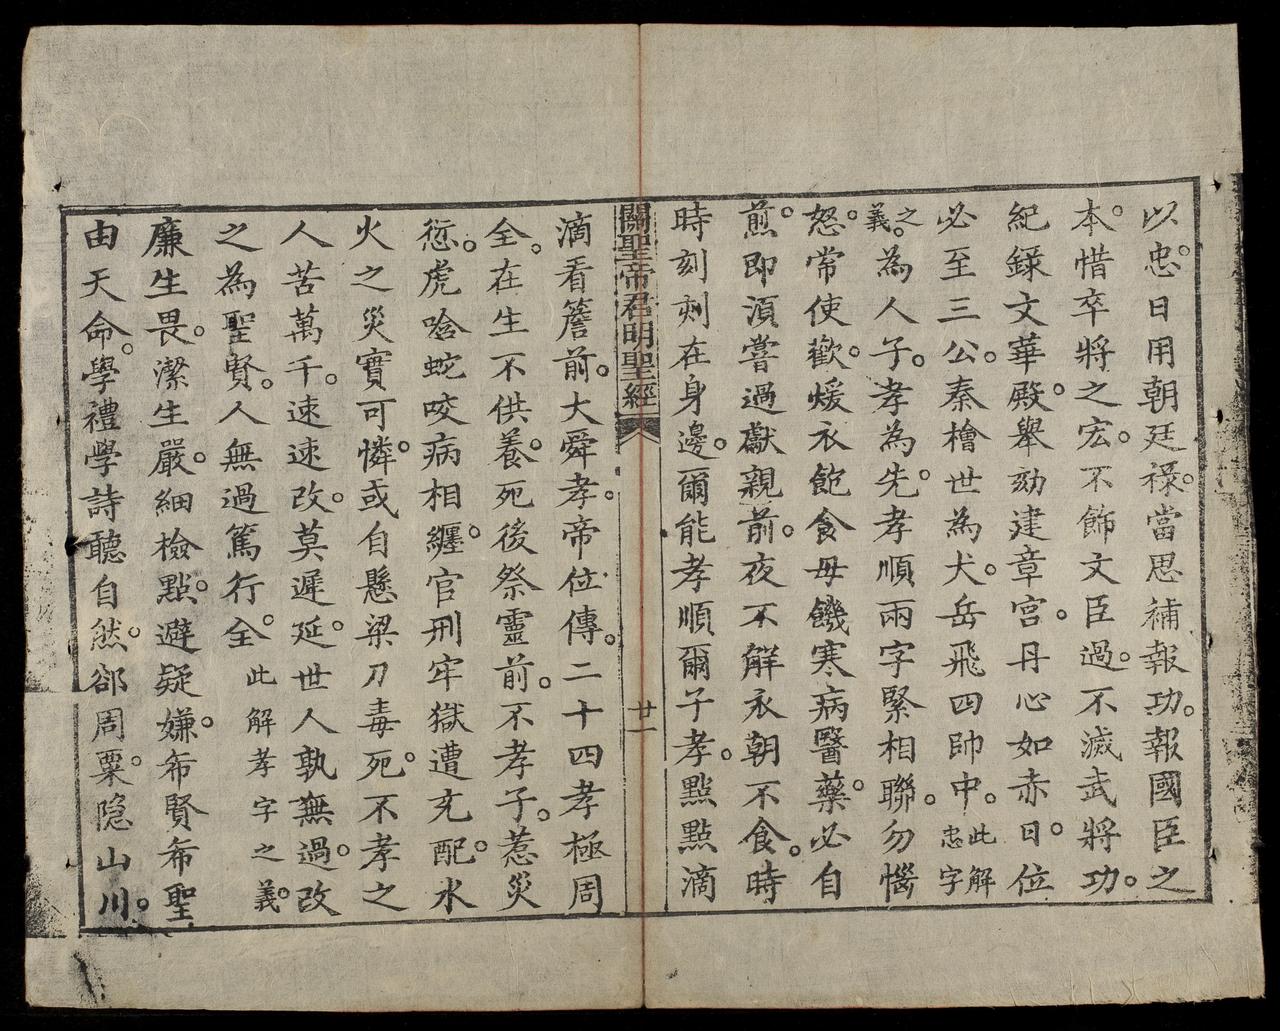 以忠。日用朝廷祿。當思補報功。報國臣之
本。惜卒將之宏。不飾文臣過。不滅武將功。
紀錄文華殿。舉劾建章宮。丹心如赤日。位
必至三公。秦檜世為犬。岳飛四帥中。此解忠字
之義。為人子。孝為先。孝順兩字緊相聯。勿惱
怒。常使歡。煖衣飽食毋饑寒。病醫藥。必自
煎。即湏嘗過獻親前。夜不解衣朝不食。時
時刻刻在身邊。爾能孝順爾子孝。點點滴
關聖帝君明聖經
廿一
滴看簷前。大舜孝。帝位傳。二十四孝極周
全。在生不供養。死後祭靈前。不孝子。惹災
愆。虎唅蛇咬病相纏。官刑牢獄遭充配。水
火之災實可憐。或自懸梁刀毒死。不孝之
人苦萬千。速速改。莫遲延。世人孰無過。改
之為聖賢。人無過篤行全。此解孝字之義。
廉生畏。潔生嚴。細檢點。避疑嫌。希賢希聖
由天命。學禮學詩聽自然。郤周粟。隱山川。